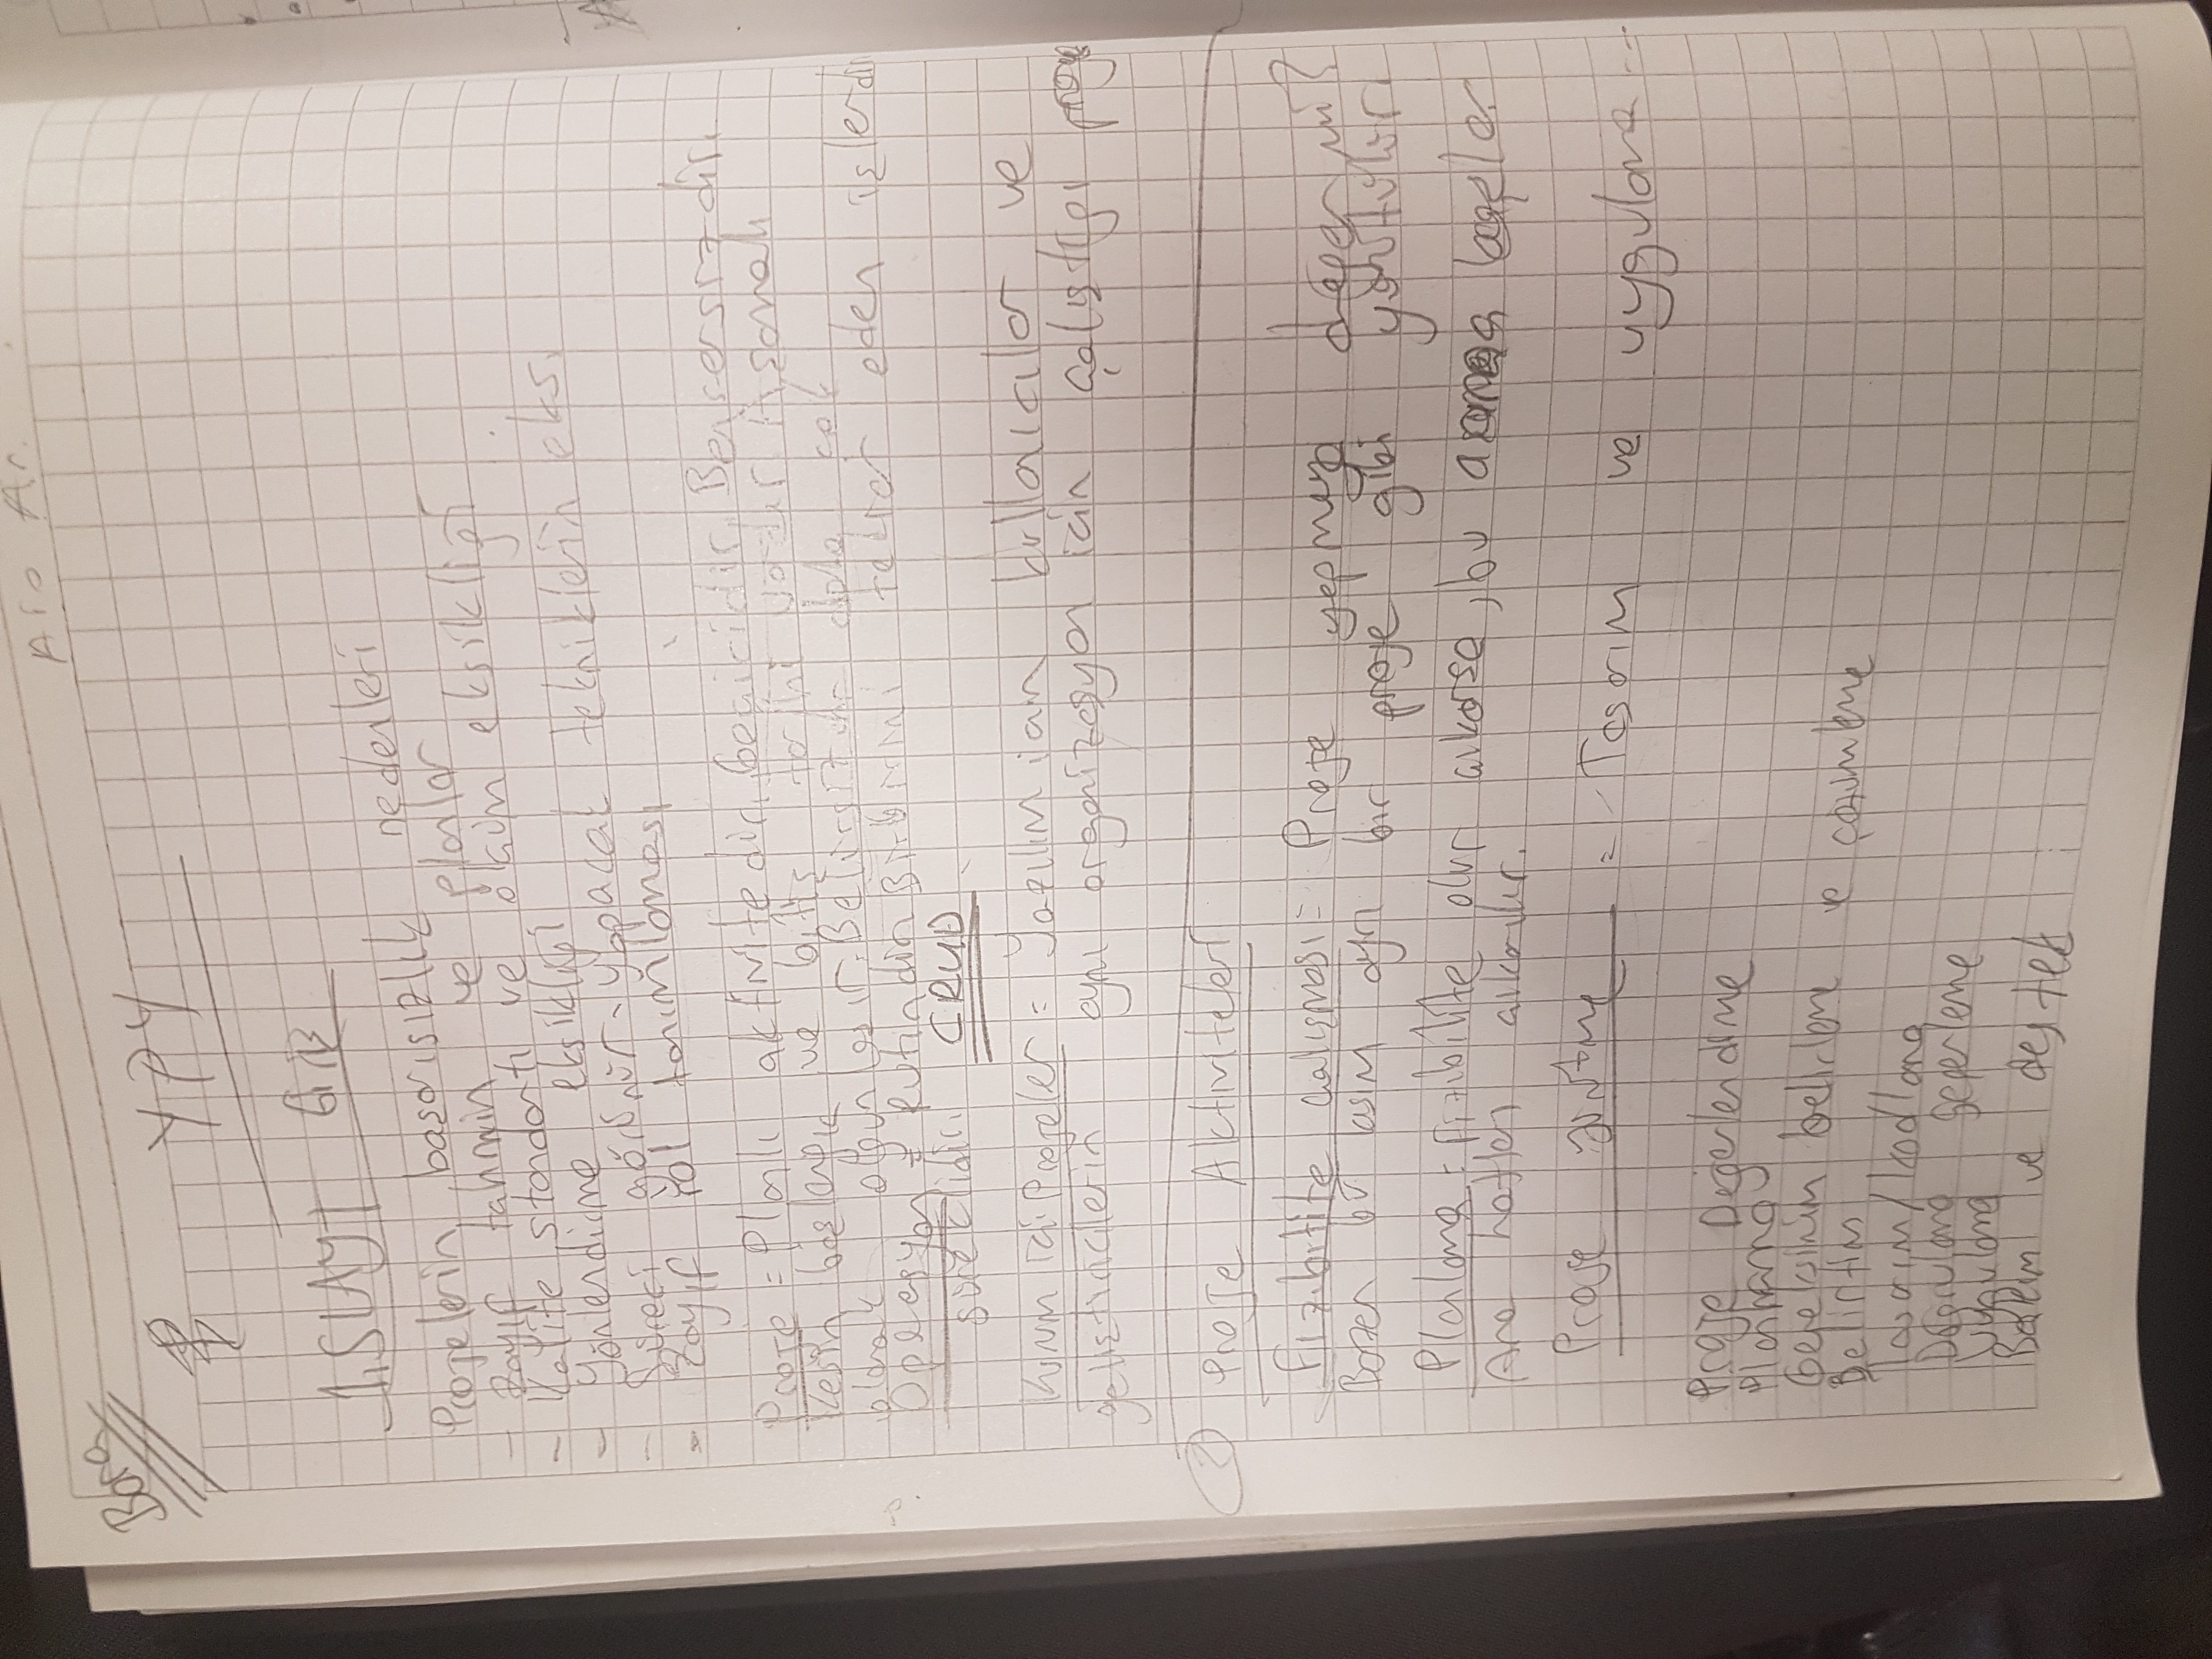 Bora
YPY
1.SLAYT
Projelerin başarısızlık nedenleri
- Zayıf tahmin ve planlar
- Kalite standartı ve ölçüm eksikliği
- Yönlendirme eksikliği
- Süreci görünür yapacak tekniklerin eks.
- Zayıf rol tanımlaması
Proje = Planlı aktivitedir, geçicidir, Benzersizdir.
Kesin başlangıç ve bitiş tarihi vardır Aşamalı
olarak olgunlaşır. Belirsizlik daha çok
Operasyon = Rutindir. Birbirini tekrar eden işlerdir
süreklidir. CRUD
Kurum içi Projeler = Yazılım için kullanıcılar ve
geliştiricilerin aynı organizasyon için çalıştığı proje
2 Proje Aktiviteleri
Fizibilite çalışması = Proje yapmaya değer mi?
Bazen bu kısım ayrı bir proje gibi yürütülür
Planlama = fizibilite olur çıkarsa, bu aşama başlar
Ana hatları çıkarılır.
Proje yürütme = - Tasarım ve uygulama ---
Proje Değerlendirme
Planlama
Gereksinim belirleme ve çözümleme
Belirtim
Tasarım/Kodlama
Doğrulama geçerleme
Uygulama
Bakım ve destek